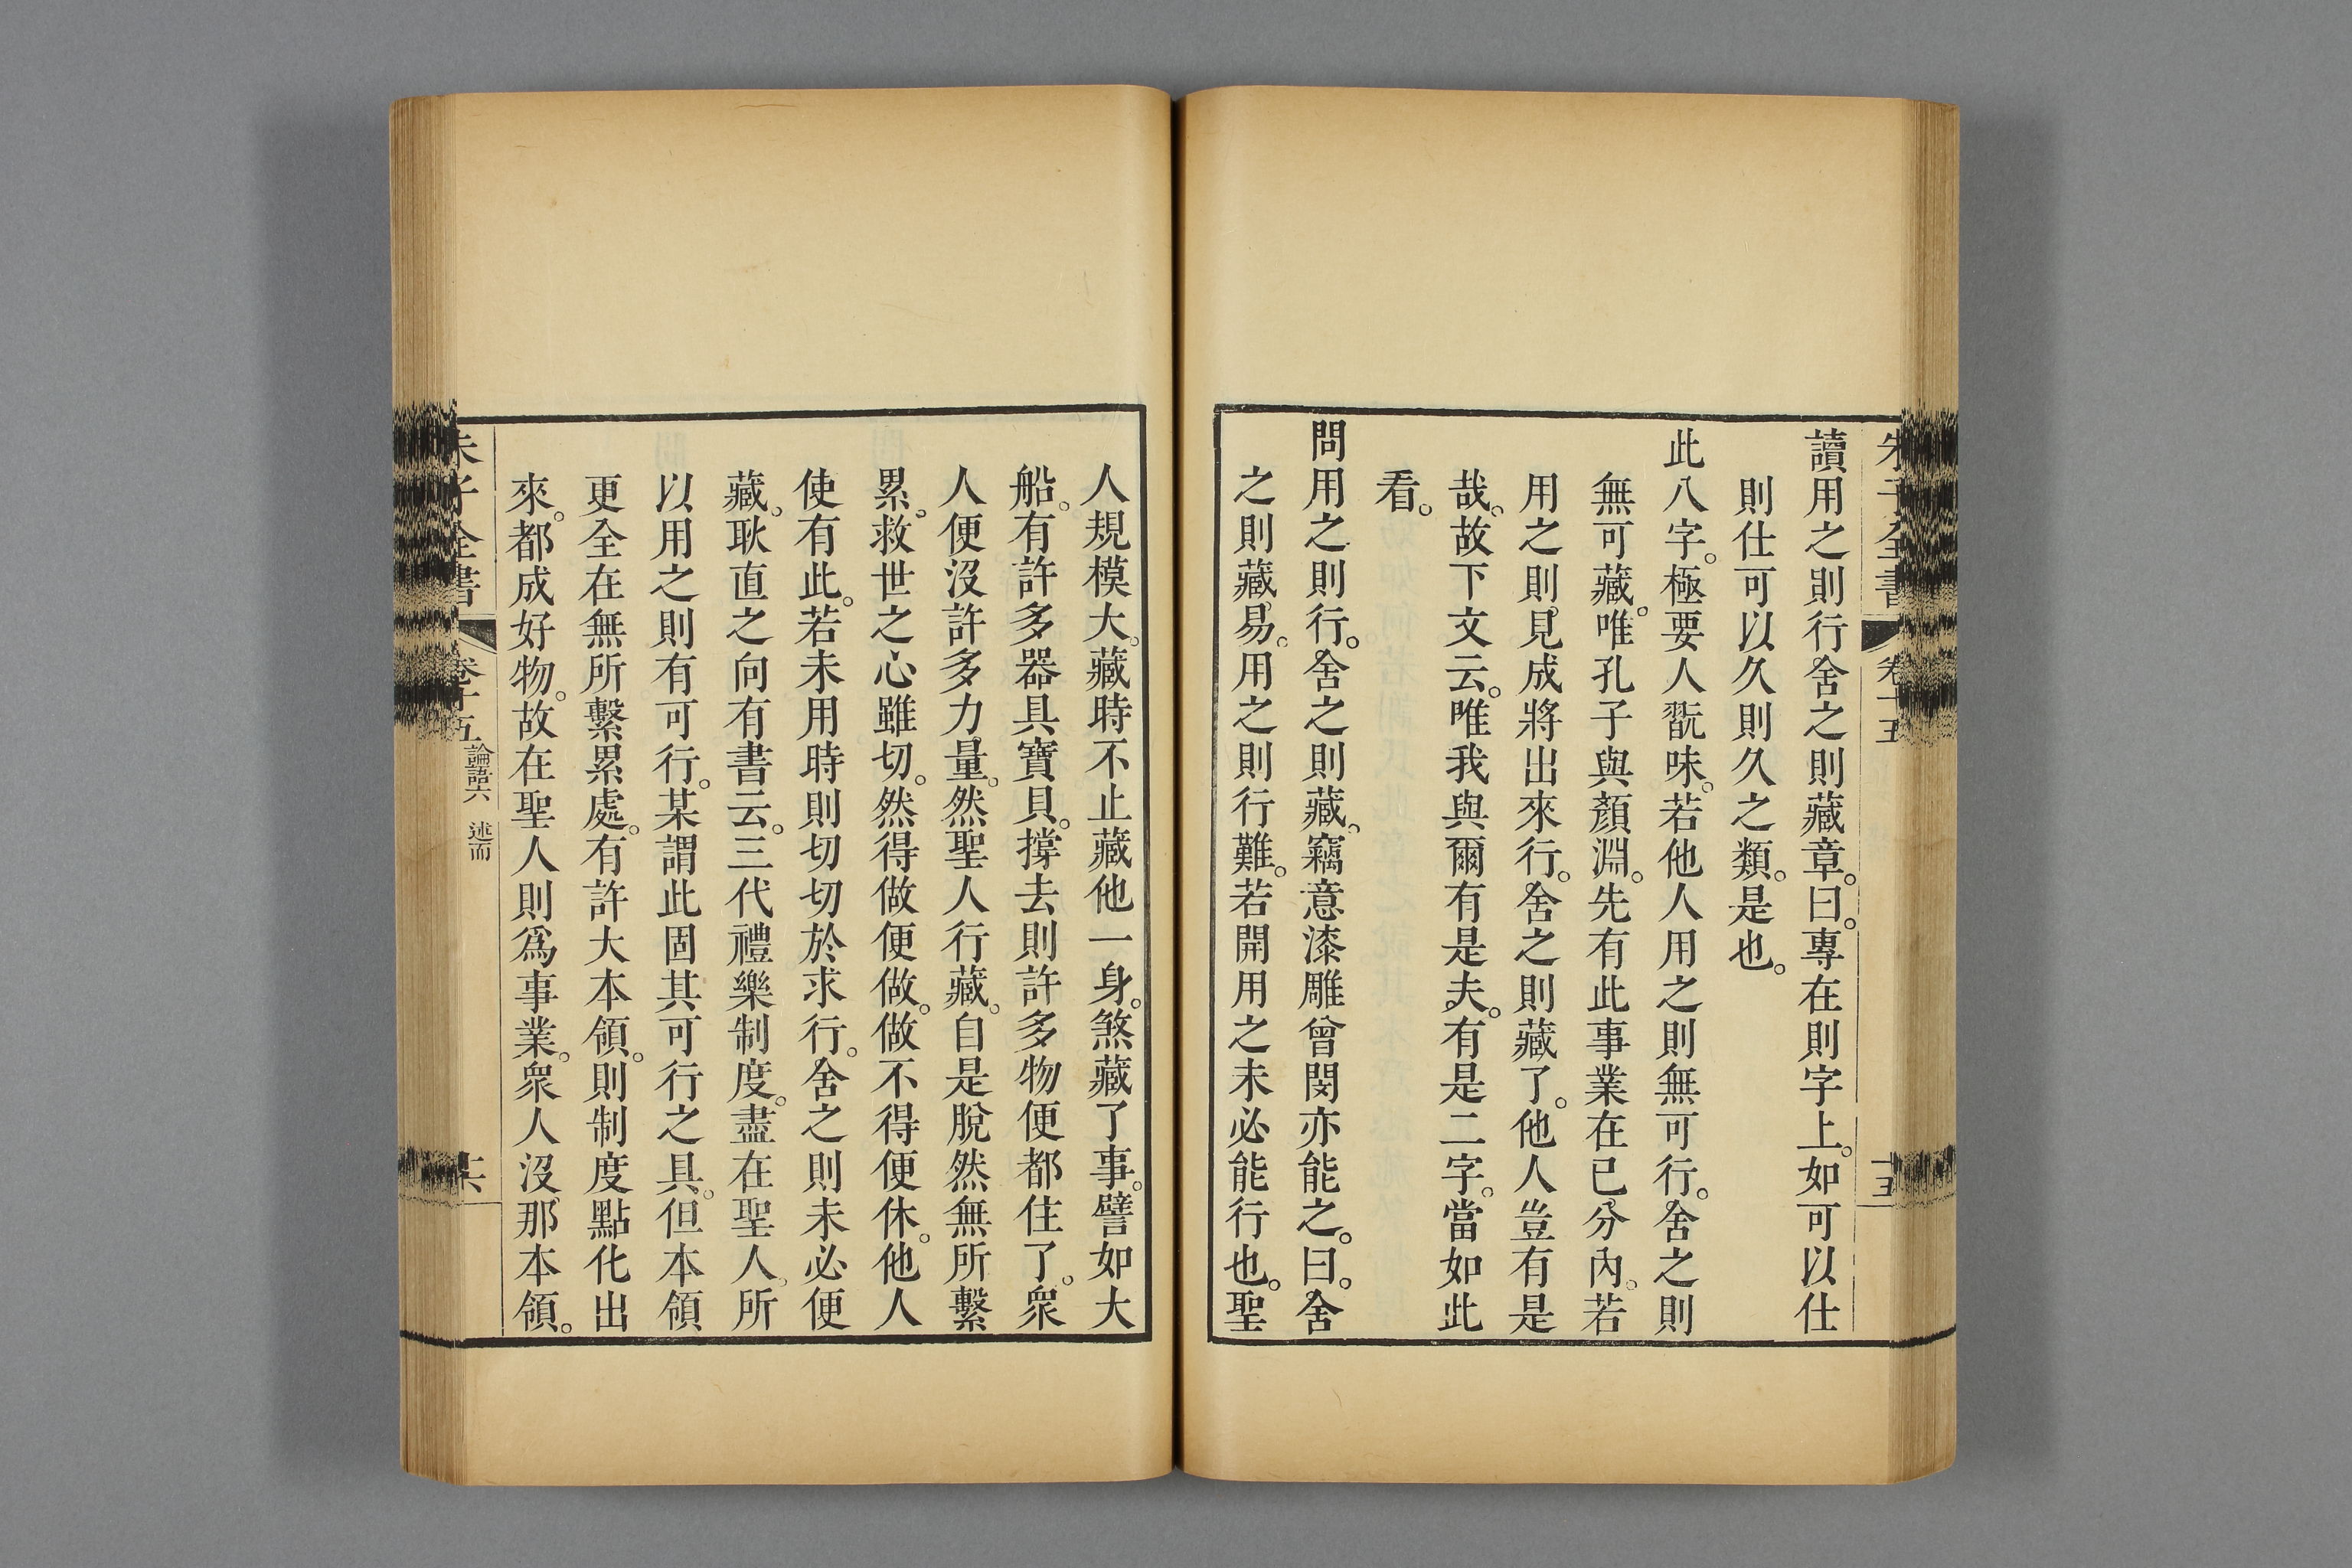 朱子全書 卷十五 十五
讀用之則行舍之則藏章。曰。專在則字上。如可以仕
則仕可以久則久之類。是也。
此八字。極要人翫味。若他人用之則無可行。舍之則
無可藏。唯孔子與顏淵。先有此事業在已分內。若
用之則見成將出來行。舍之則藏了。他人豈有是
哉。故下文云。唯我與爾有是夫。有是二字。當如此
看。
問用之則行。舍之則藏。竊意漆雕曾閔亦能之。曰。舍
之則藏易。用之則行難。若開用之未必能行也。聖
人規模大。藏時不止藏他一身。煞藏了事。譬如大
船。有許多器具寶貝。撐去則許多物便都住了。衆
人便沒許多力量。然聖人行藏。自是脫然無所繫
累。救世之心雖切。然得做便做。做不得便休。他人
使有此。若未用時則切切於求行。舍之則未必便
藏。耿直之向有書云。三代禮樂制度。盡在聖人。所
以用之則有可行。某謂此固其可行之具。但本領
更全在無所繫累處。有許大本領。則制度點化出
來。都成好物。故在聖人則爲事業。衆人沒那本領。
朱子全書 卷十五 論語六 述而 十六